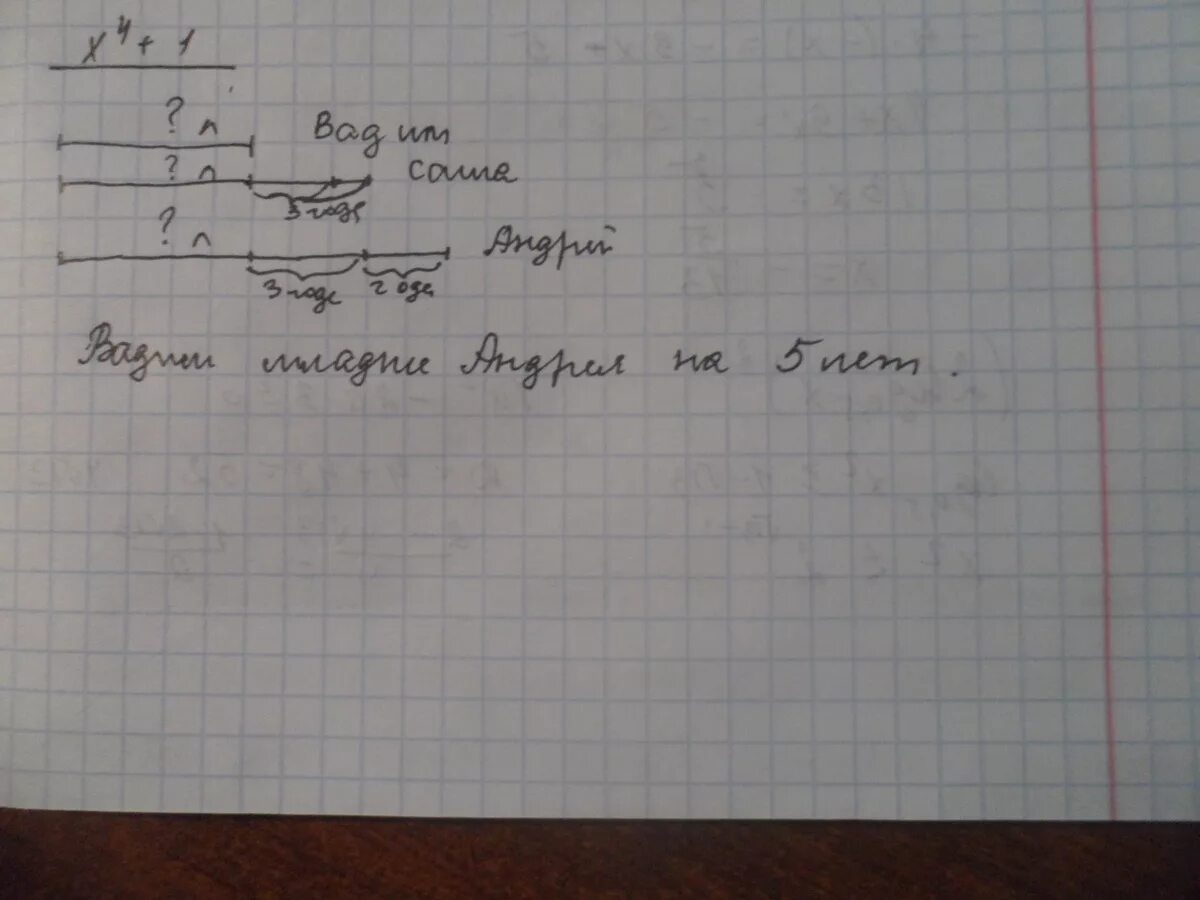 x⁴ + 1
? л Вадим
? л Саша
3 года
? л Андрей
3 года 2 года
Вадим младше Андрея на 5 лет.